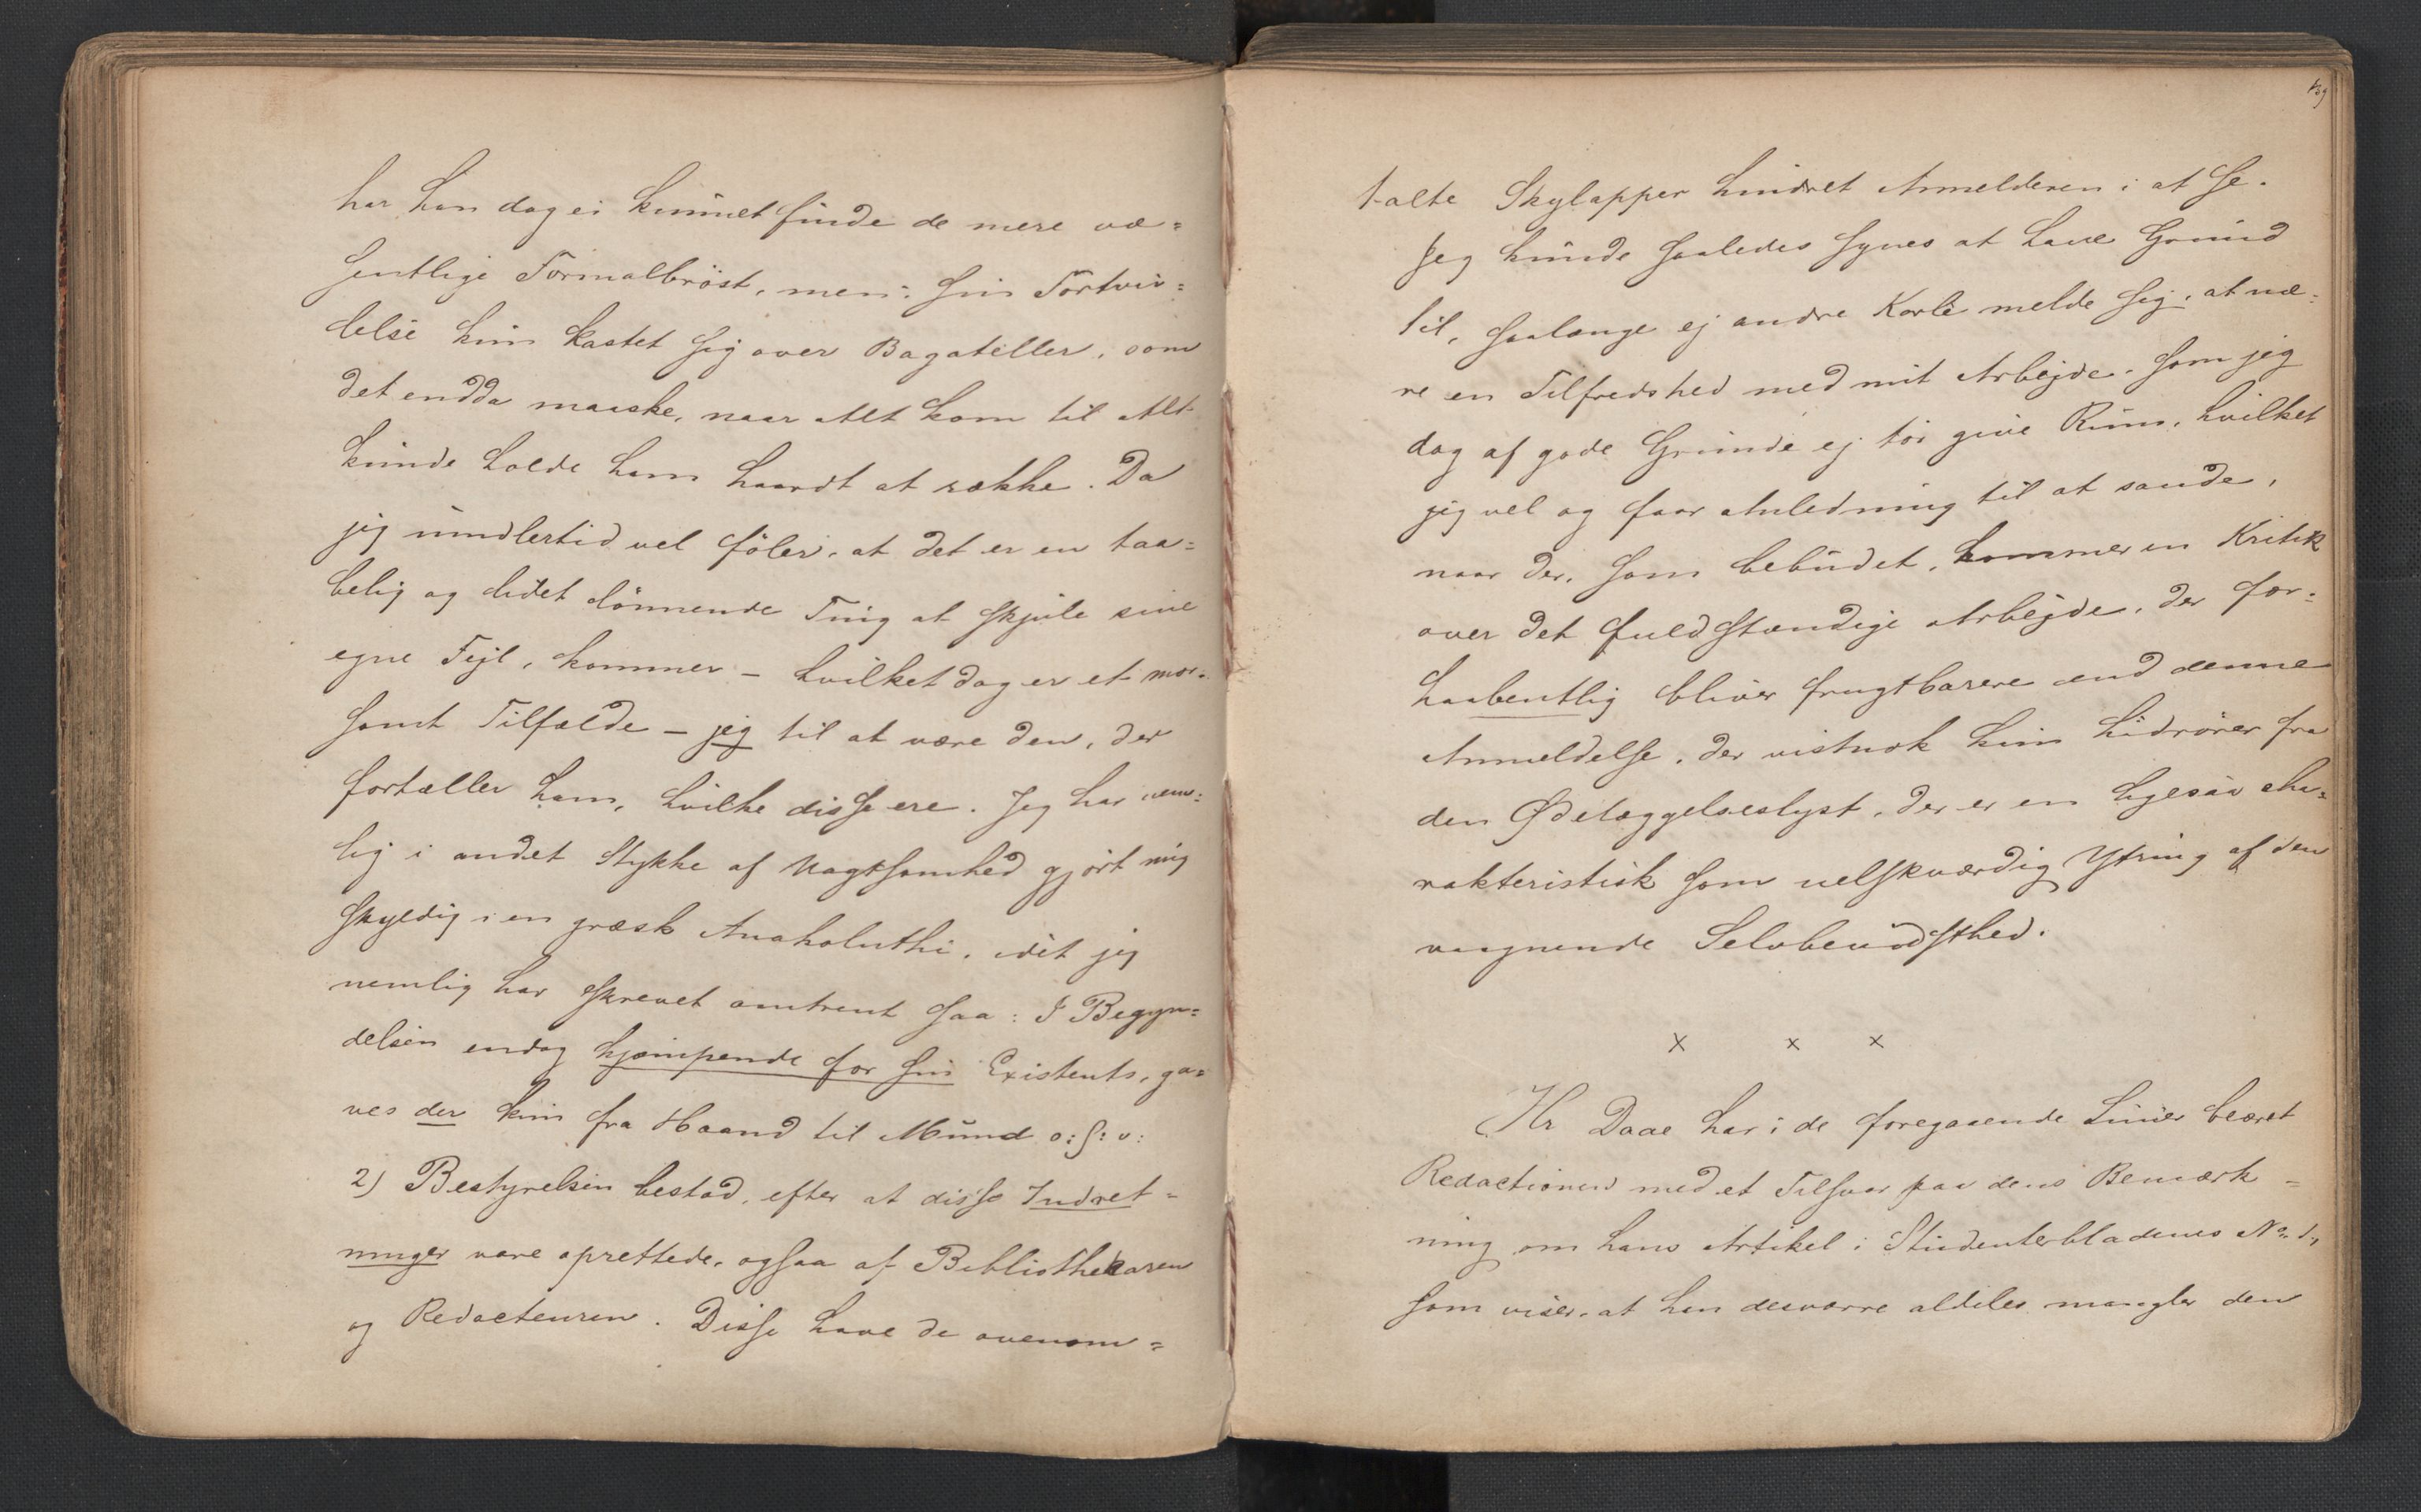 har han dog ei kunnet finde de mere væ=
sentlige Formalbröst, men i sin Fortviv=
lelse kun kastet sig over Bagateller, som
det endda maaske, naar Alt kom til Alt
kunde holde ham haardt at række. Da
jeg imidlertid vel föler, at det er en taa=
belig og lidet lönnende Ting at skjule sine
egne Fejl, kommer – hvilket dog er et mor=
somt Tilfælde – jeg til at være den, der
fortæller ham, hvilke disse ere. Jeg har nem=
lig i andet Stykke af Uagtsomhed gjort mig
skyldig i en græsk Anakoluthi, idet jeg
nemlig har skrevet omtrent saa: I Begyn=
delsen endog kjæmpende for sin Existents, ga=
ves der kun fra Haand til Mund o: s: v:
2) Bestyrelsen bestod, efter at disse Indret=
ninger vare oprettede, ogsaa af Bibliothekaren
og Redacteuren. Disse have de ovenom=
139
talte Skylapper hindret Anmelderen i at se.
Jeg kunde saaledes synes at have Grund
til, saalænge ej andre Karle melde sig, at næ=
re en Tilfredshed med mit Arbejde, som jeg
dog af gode Grunde ej tör give Rum, hvilket
jeg vel og faar Anledning til at sande,
naar der, som bebudet, kommer en Kritik
over det fuldstændige Arbejde, der for=
haabentlig bliver frugtbarere end denne
Anmeldelse, der vistnok kun hidrörer fra
den Ødelæggelseslyst, der er en ligesaa cha=
rakteristisk som uelskværdig Ytring af den
vaagnende Selvbevidsthed.
x x x
Hr Daae har i de foregaaende Linier beæret
Redactionen med et Tilsvar paa dens Bemærk=
ning om hans Artikel i Studenterbladenes No. 1,
som viser, at han desværre aldeles mangler den